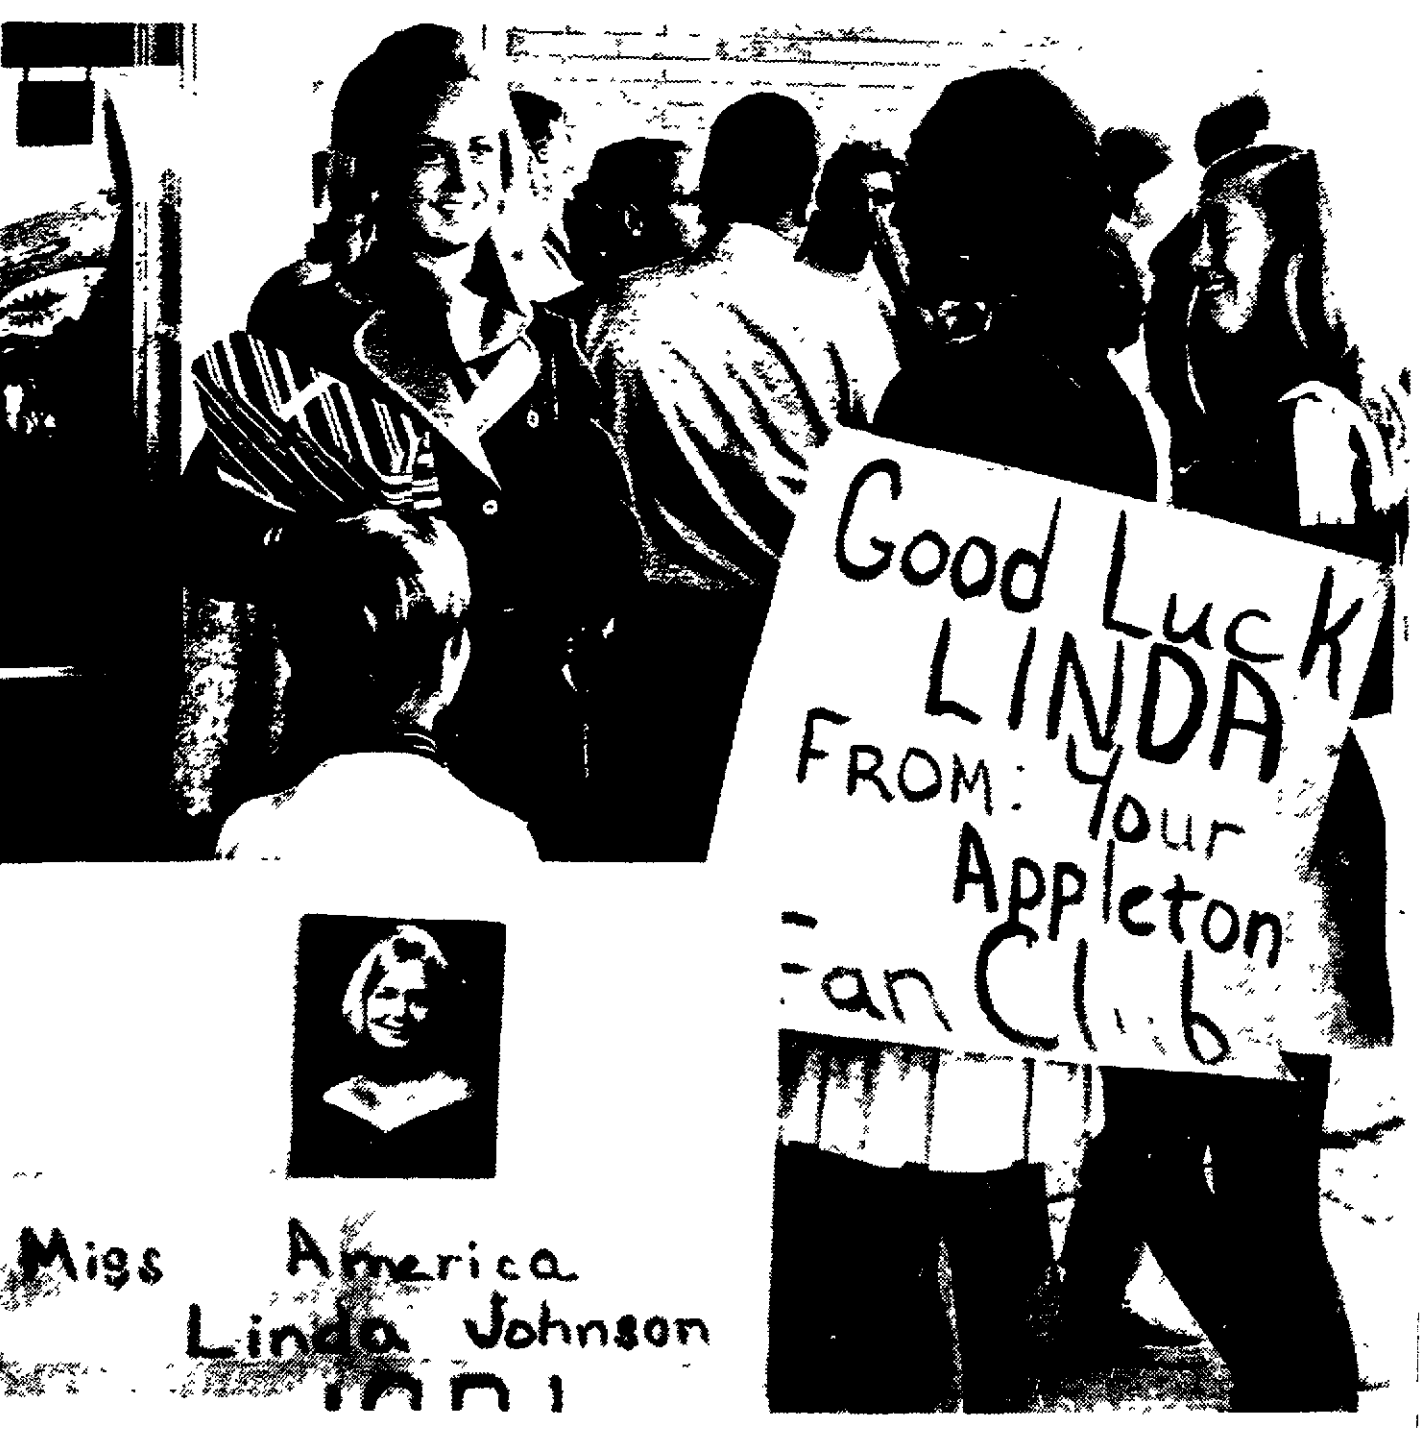 Good Luck
LINDA
FROM: Your
Appleton
Fan Club
Miss America
Linda Johnson